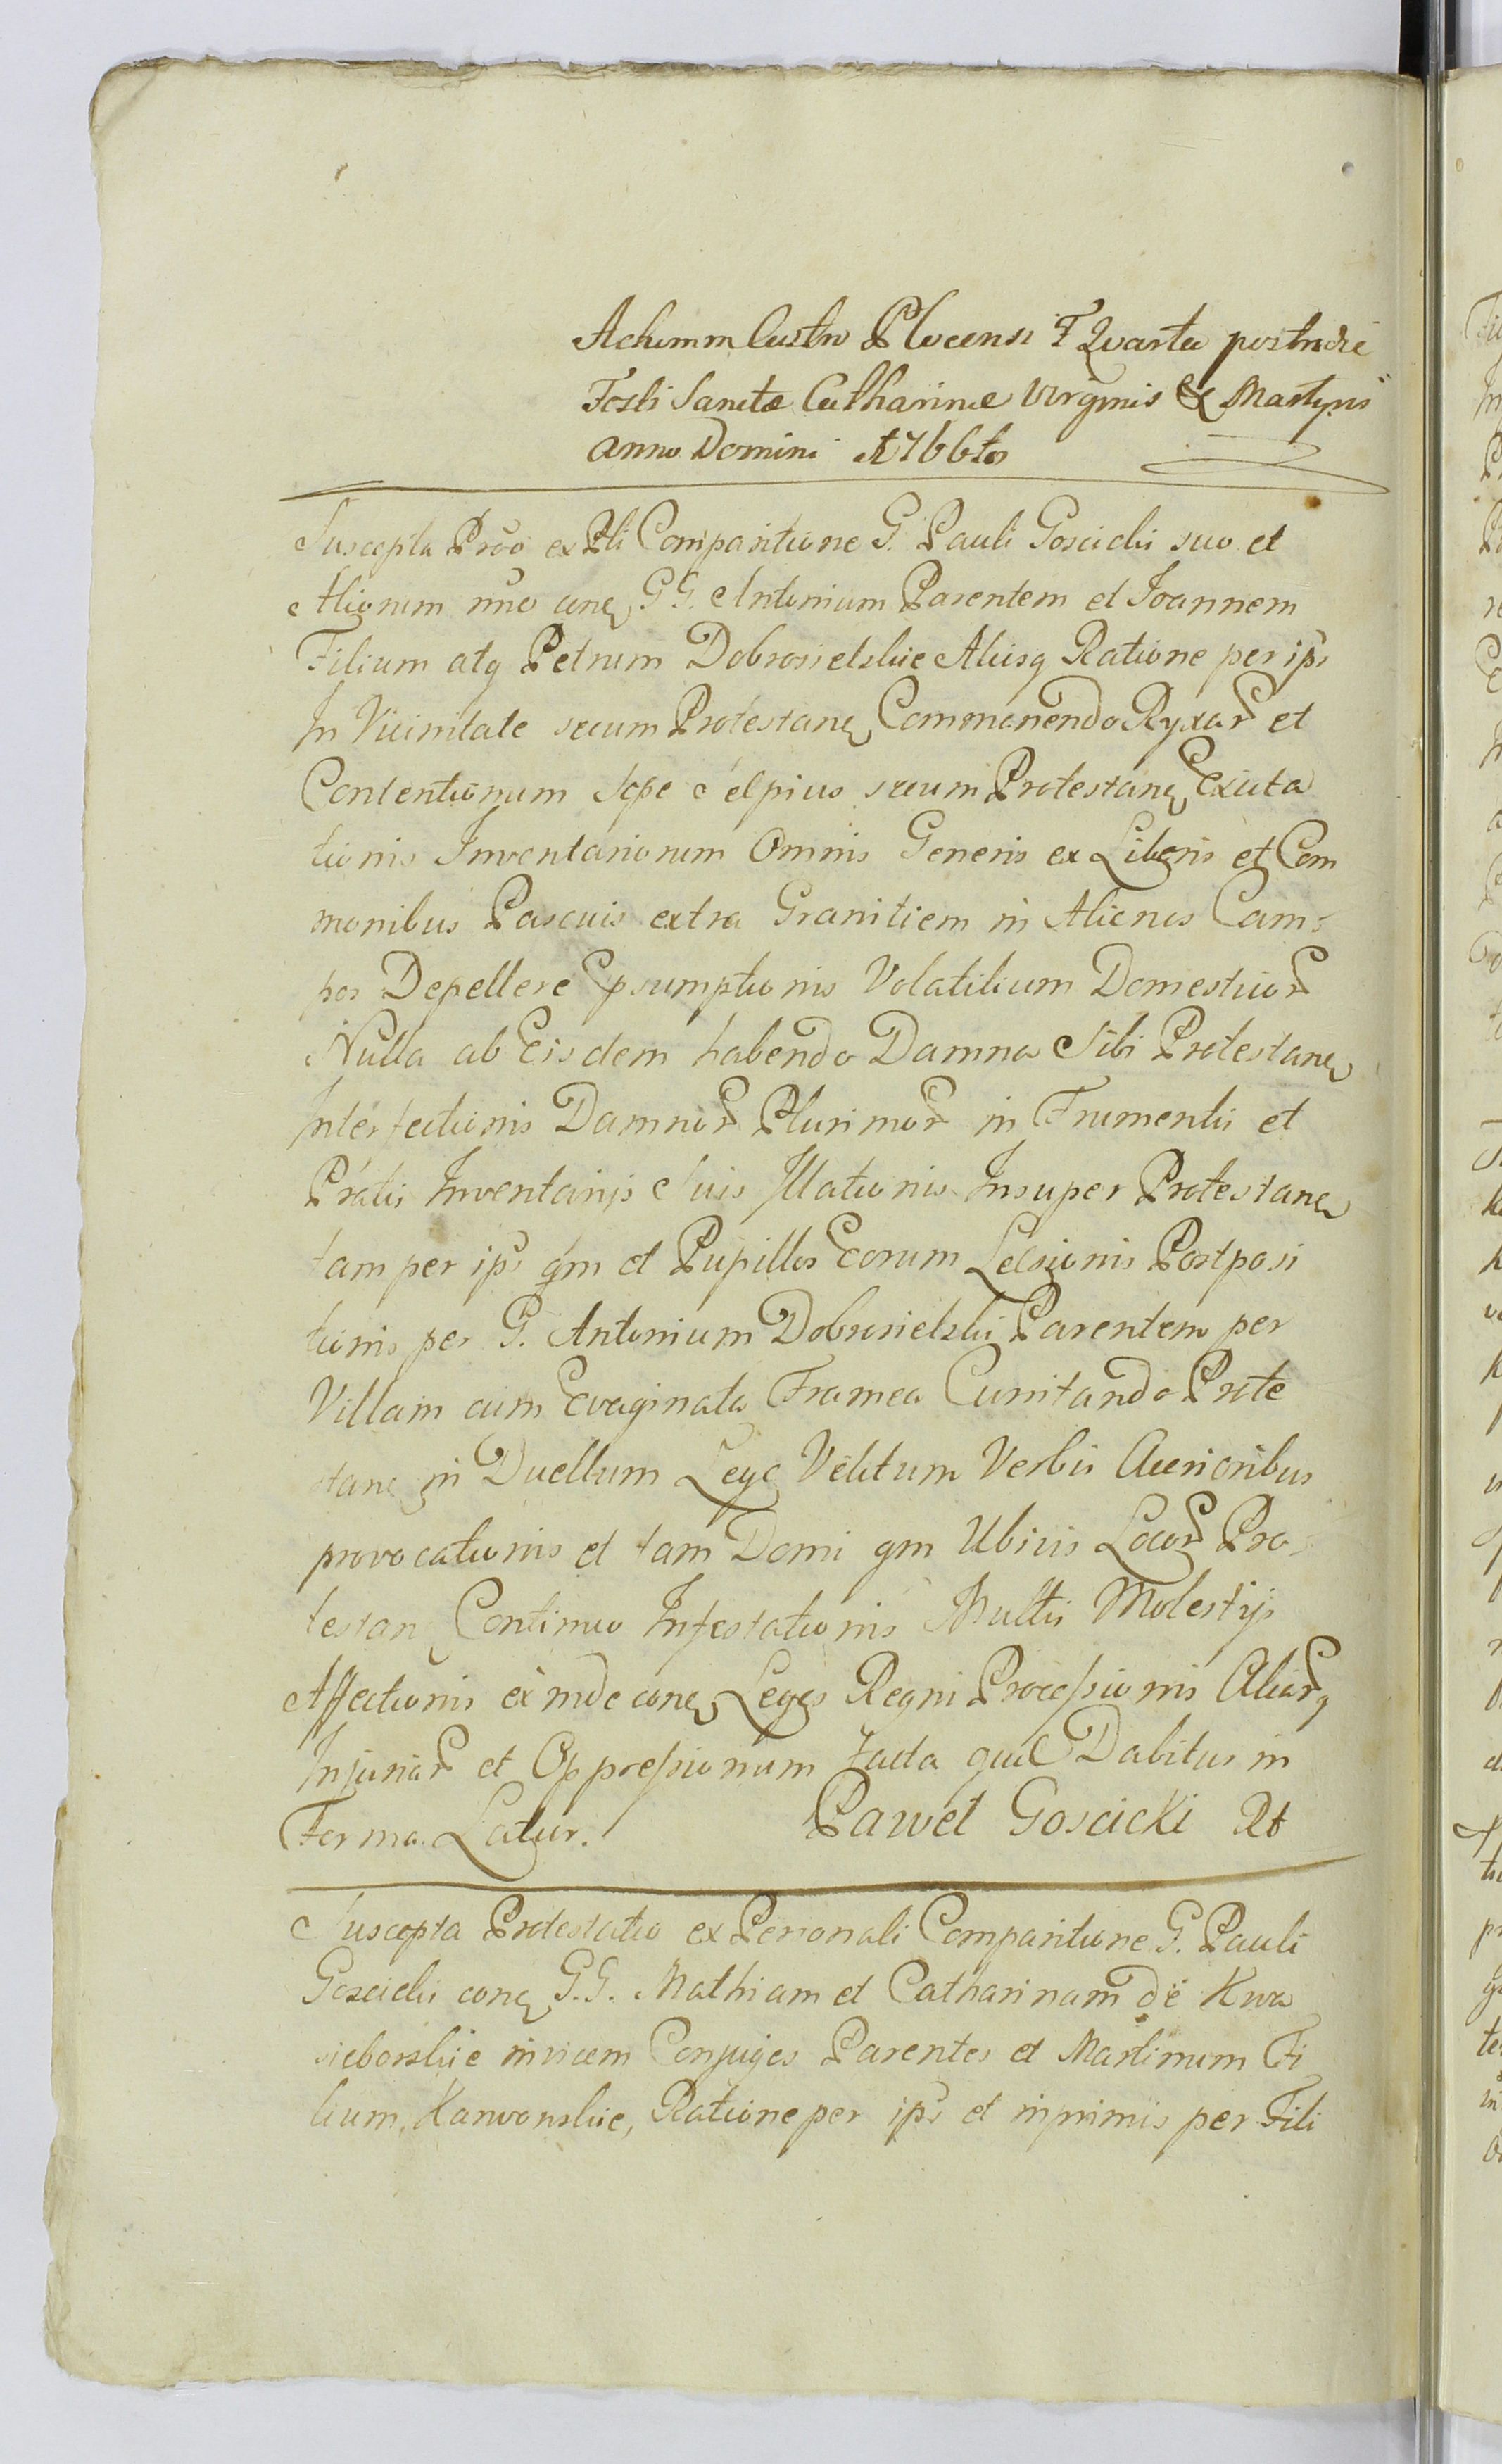 Actum in Castro Plocensi F Quarta postridie
Festi Sanctæ Catharinæ Virginis & Martyris
anno Domini 1766to
Suscepta Prõo ex Pli Comparitione G. Pauli Goscicki suo et
Aliorum nñe conq GG. Antonium Parentem et Joannem
Filium atq Petrum Dobrosielskie Aliisq Ratione per ips
In Vicinitate secum Protestanq Commanendo Ryxar et
Contentionum sepe Sepius secum Protestanq Excita
tionis Inventariorum Omnis Generis ex Liberis et Com
monibus Pascuis extra Granitiem in Alienos Cam-
pos Depellere Psumptionis Volatilium Domesticor
Nulla ab Eisdem habendo Damna Sibi Protestanq
Interfectionis Damnor Plurimor in Frumentis et
Pratis Inventarijs Suis Illationis Insuper Protestanq
tam per ips qm et Pupillos Eorum Lesionis Postposi
tionis per G. Antonium Dobrosielski Parentem per
Villam cum Evaginata Framea Cursitando Prote
stanq in Duellum Lege Vetitum Verbis Acerioribus
provocationis et tam Domi qm Ubivis Locor Pro-
testanq Continuo Infestationis Multis Molestijs
Affectionis exinde conq Leges Regni Processionis Aliarq
Injuriar et Oppressionum facta quæ Dabitur in
Forma Latur.
Paweł Goscicki Rt
Suscepta Protestatio ex Personali Comparitione G. Pauli
Goscicki conq G.G. Mathiam et Catharinam de Kwa
sieborskie invicem Conjuges Parentes et Martinum Fi
lium, Karwoskie, Ratione per ips et inprimis per Fili